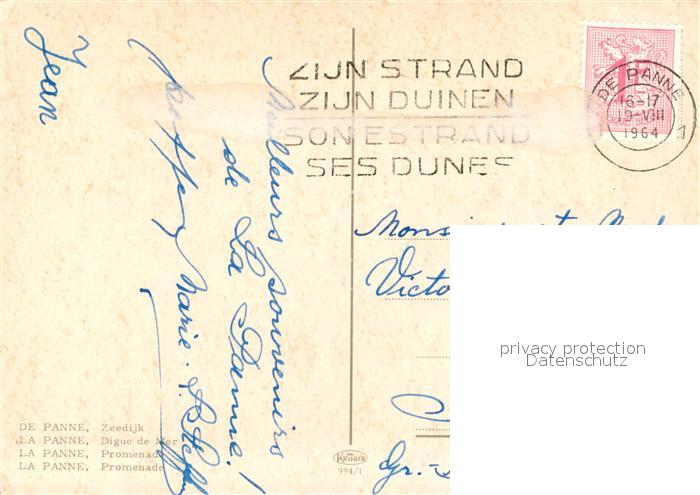 Jean
Meilleurs souvenirs
de La Panne!
Marie
ZIJN STRAND
ZIJN DUINEN
SON ESTRAND
SES DUNES
DE PANNE
16-17
19-VIII
1964
1
Monsieur et
Victo
Gr.-
privacy protection
Datenschutz
DE PANNE, Zeedijk
LA PANNE, Digue de Mer
LA PANNE, Promenade
LA PANNE, Promenade
KRÜGER
994/1